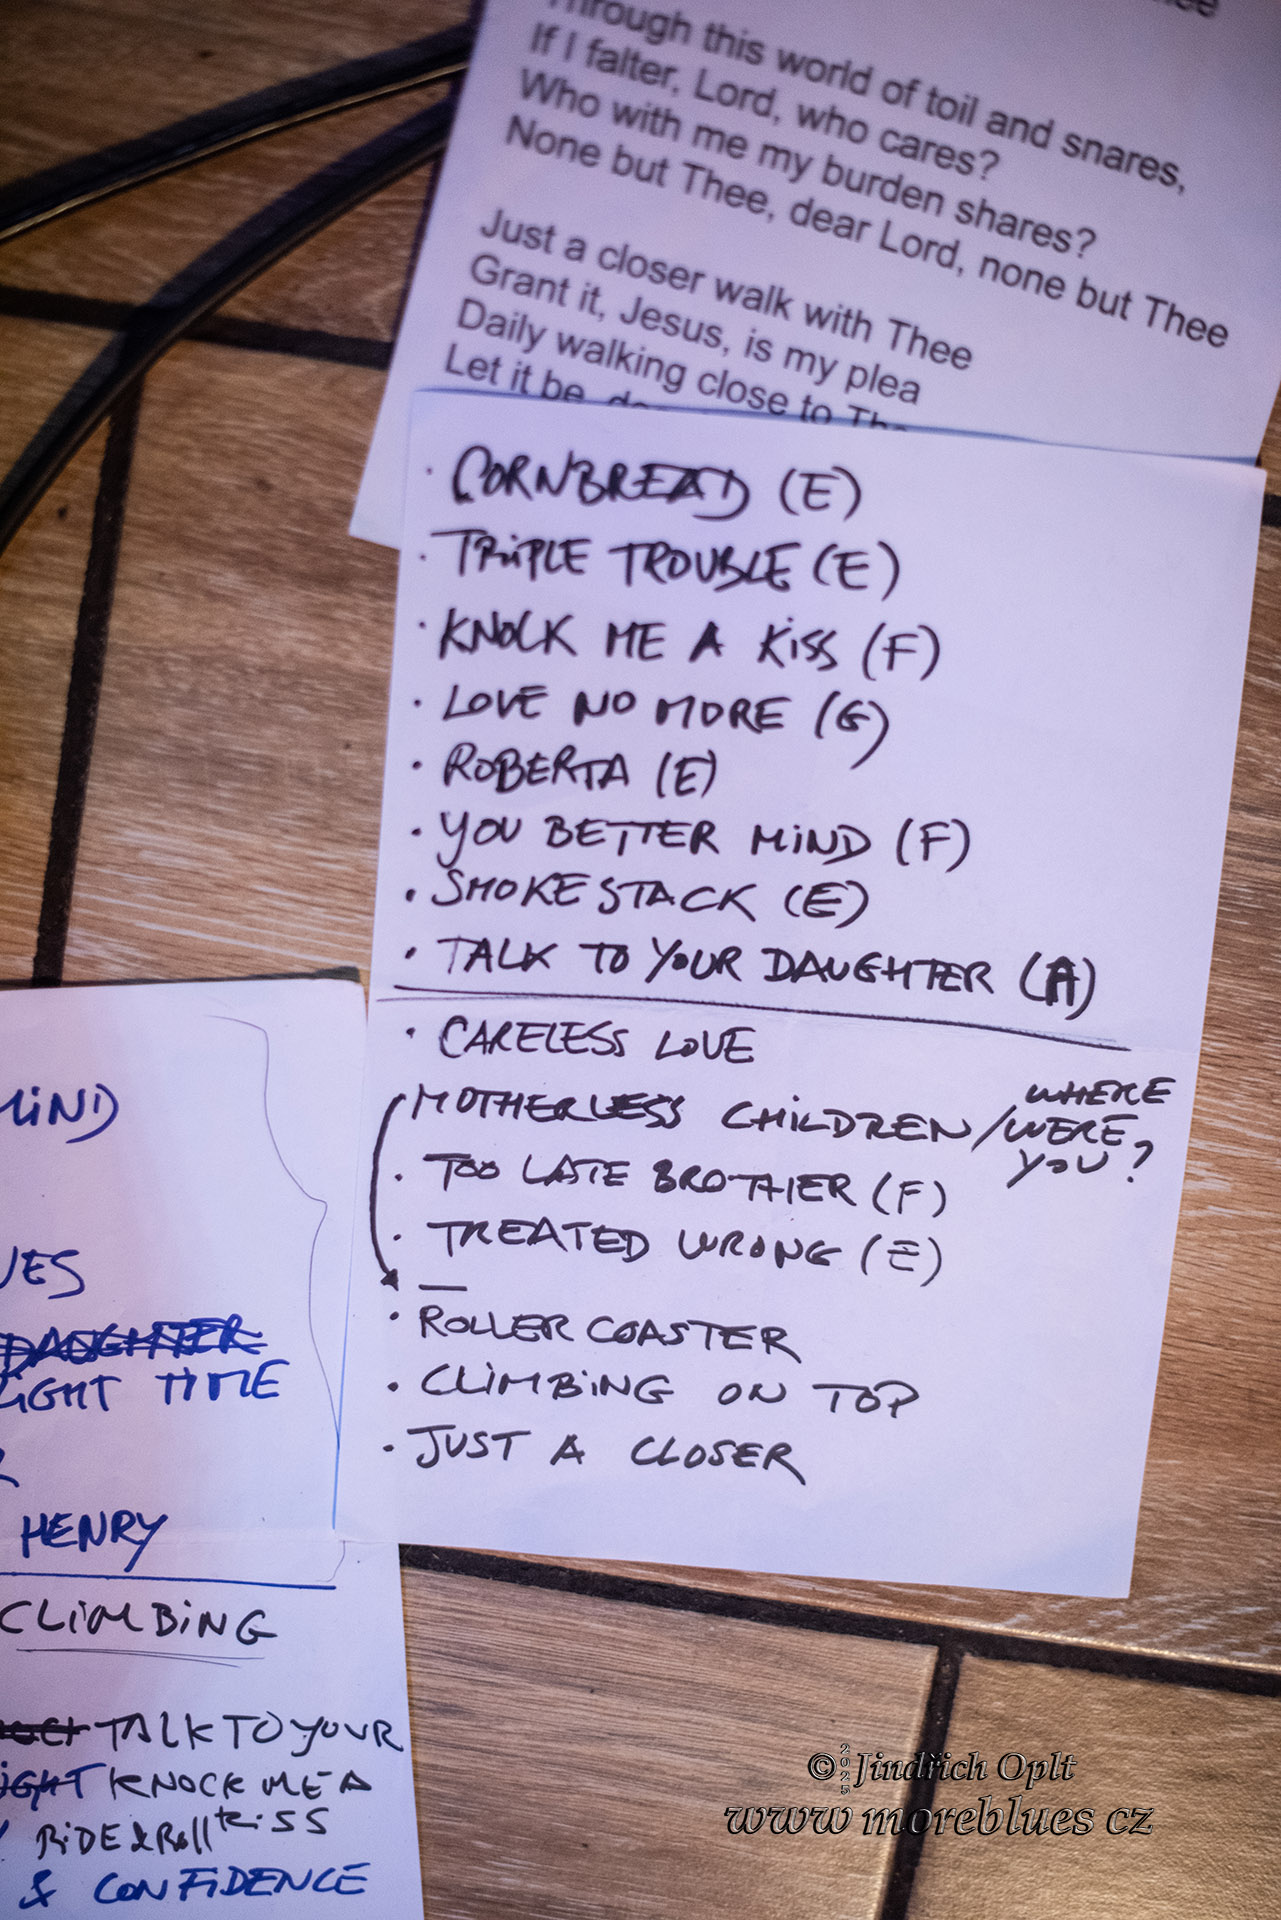 Through this world of toil and snares,
If I falter, Lord, who cares?
Who with me my burden shares?
None but Thee, dear Lord, none but Thee
Just a closer walk with Thee
Grant it, Jesus, is my plea
Daily walking close to
Let it be,
· CORNBREAD (E)
· TRIPLE TROUBLE (E)
· KNOCK ME A KISS (F)
· LOVE NO MORE (G)
· ROBERTA (E)
· YOU BETTER MIND (F)
· SMOKESTACK (E)
· TALK TO YOUR DAUGHTER (A)
· CARELESS LOVE
MOTHERLESS CHILDREN / WHERE WERE YOU?
· TOO LATE BROTHER (F)
· TREATED WRONG (E)
· ROLLER COASTER
· CLIMBING ON TOP
· JUST A CLOSER
MIND
VES
DAUGHTER
IGHT TIME
HENRY
CLIMBING
TALK TO YOUR
IGHT KNOCK ME A
RIDE & Roll KISS
& CONFIDENCE
© 2025 Jindřich Oplt
www moreblues cz